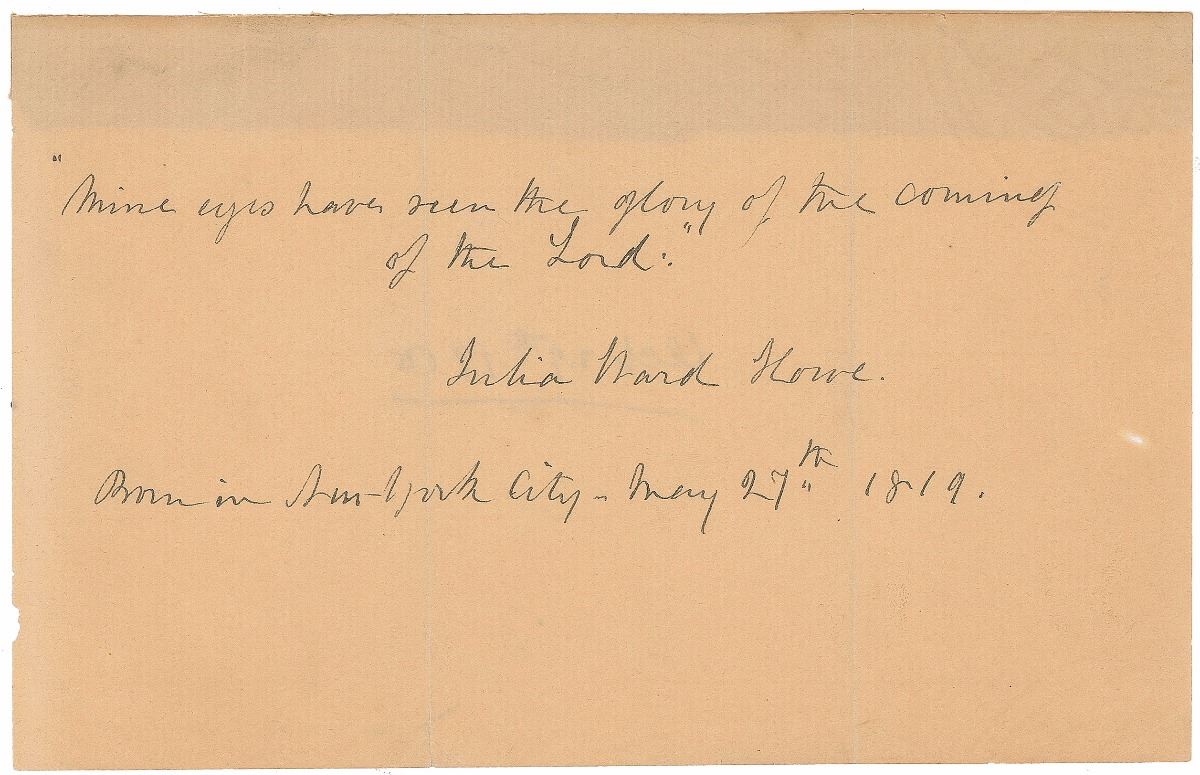 "Mine eyes have seen the glory of the coming
of the Lord:"
Julia Ward Howe.
Born in New-York City - May 27th 1819.